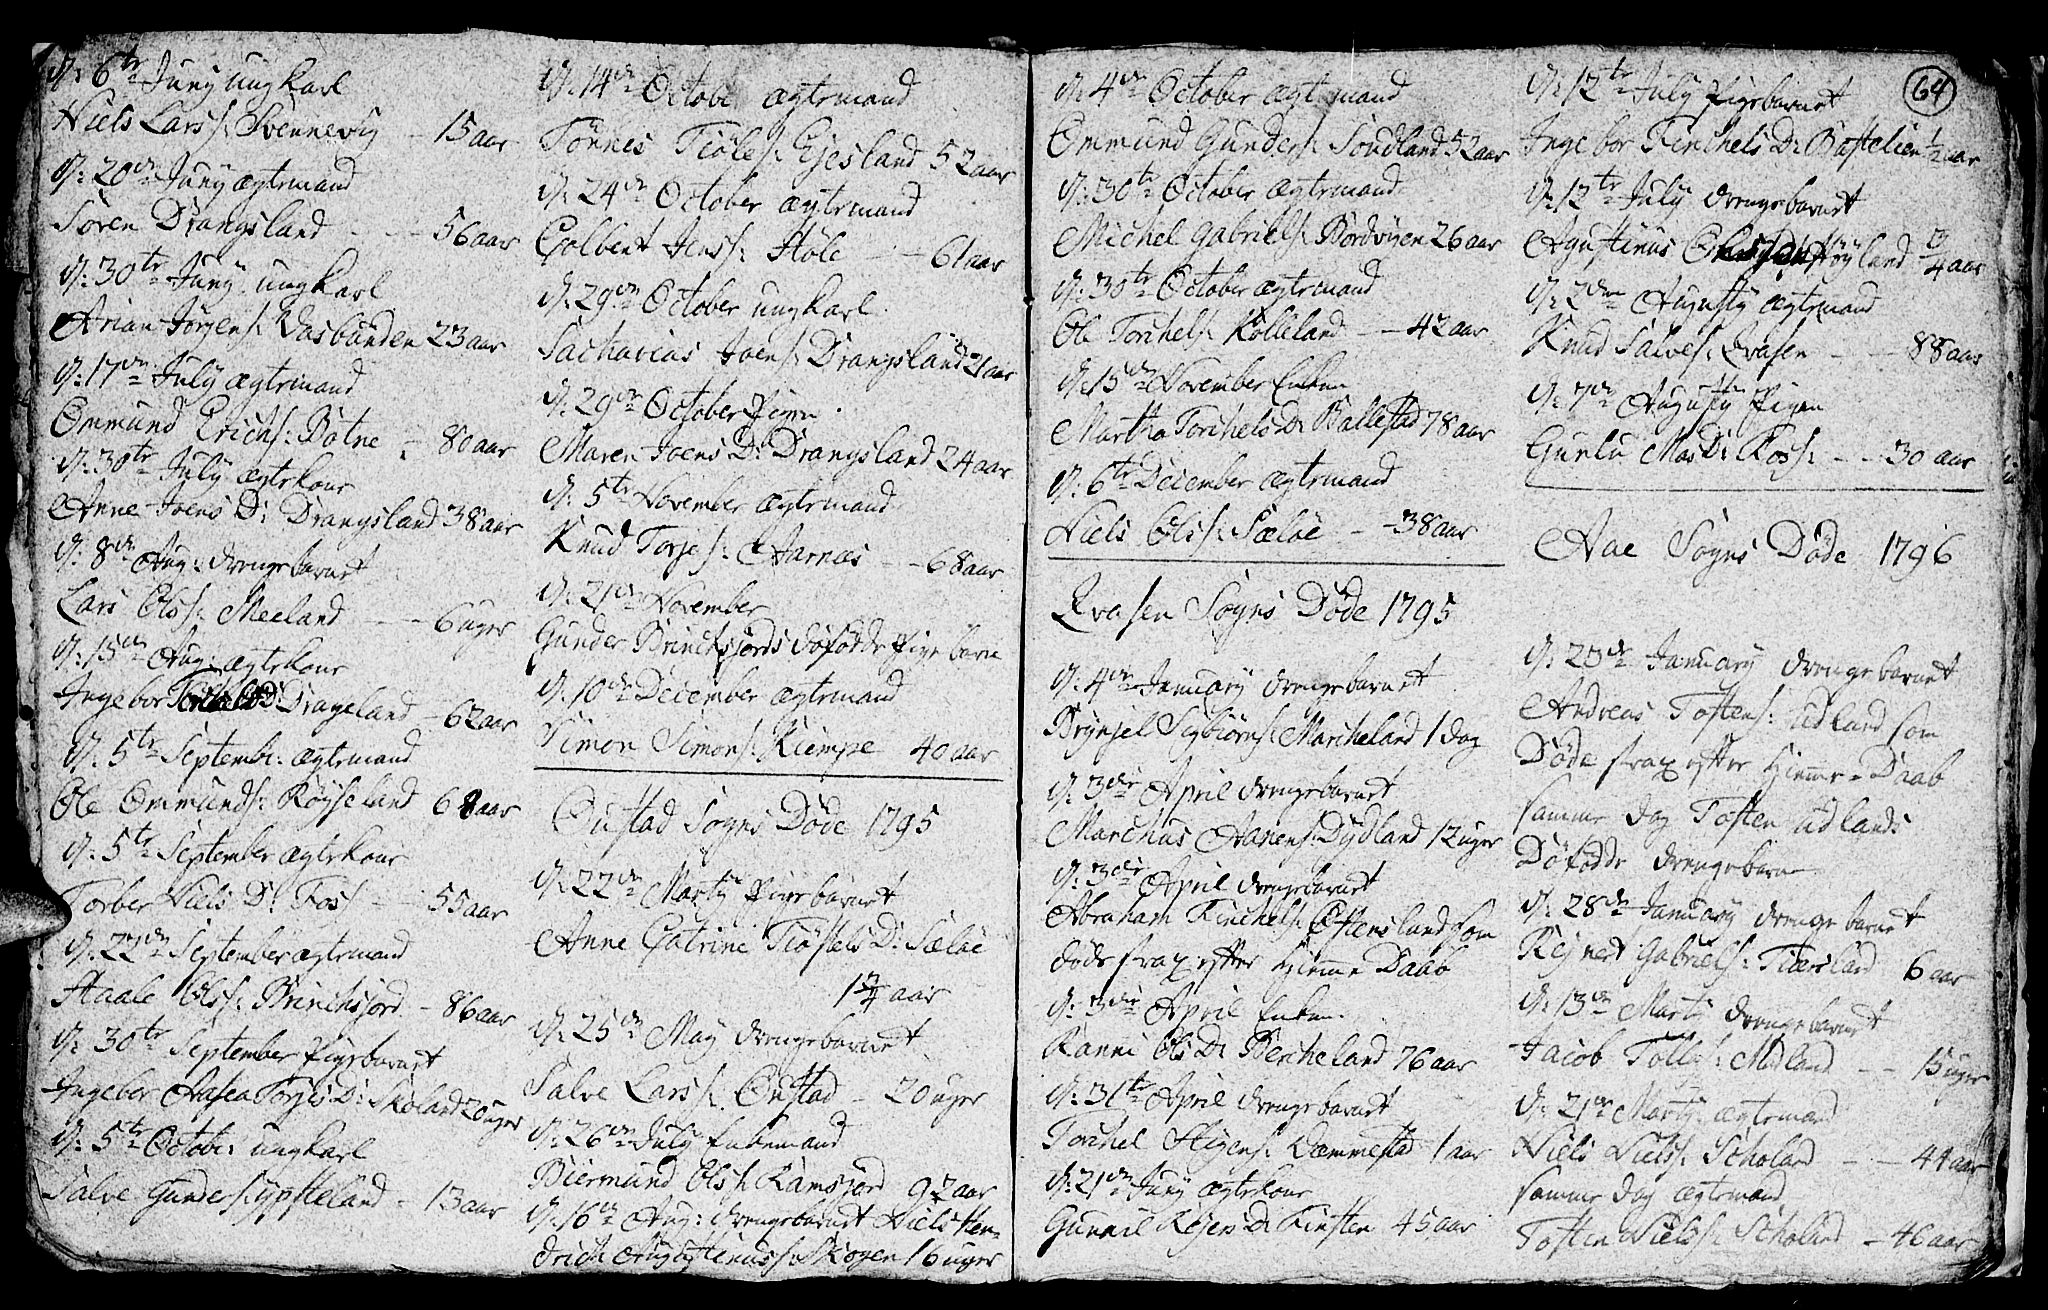 D: 6te Juny ungkarl
Niels Larss: Svennevig - 15 aar
D: 20de Juny ægtemand
Sören Drangsland - - - 56 aar
D: 30te Juny ungkarl
Arian Jörgens: Vasbunden 23 aar
D: 17de July ægtemand
Ommund Erichs: Botne - 80 aar
D: 30te July ægtekone
Anne Joens D: Drangsland 38 aar
D: 8de Aug: drengebarnet
Lars Olss: Meeland - - - 6 uger
D: 15de Aug: ægtekone
Ingebor D: Drageland - 62 aar
D: 5te Septemb: ægtemand
Ole Ommunds: Röyseland 68 aar
D: 5te September ægtekone
Torber Niels D: Foss - - 55 aar
D: 22de September ægtemand
Staale Olss: Brinchsjord - 86 aar
D: 30te September Pigebarnet
Ingebor Aasea Torjes D: Skoland 20 uger
D: 5te Octob: ungkarl
Salve Gunders: ypsteland - 13 aar
D: 14de Octobr ægtemand
Tönnes Tiöls: Ejesland 52 aar
D: 24de October ægtemand
Colbent Jenss: Höle - - 61 aar
D: 29de October ungkarl
Sacharias Joens: Drangsland 21 aar
D: 29de October Pigen
Maren Joens D: Drangsland 24 aar
D: 5te November ægtemand
Knud Torjes: Aarnæs - - 68 aar
D: 21de November
Gunder Brinchsjords döfödde Pige barn
D: 10de December ægtemand
Simon Simons: Kiempe 40 aar
Oustad Sogns Döde 1795
D: 22de Marty Pigebarnet
Anne Catrine Tiöstels D: Sæløe
1 3/4 aar
D: 25de May drengebarnet
Salve Larss: Oustad - 20 uger
D: 26de July Enkemand
Biermund Olss: Ramsjord 92 aar
D: 16de Aug: drengebarnet Niels Hen-
drich Augustinuss: Skogen 16 uger
64
D: 4de October ægtemand
Ommund Gunders: Soudland 52 aar
D: 30te October ægtemand
Michel Gabriels: Bordvöyen 26 aar
D: 30te October ægtemand
Ole Torchels: Kolleland - - 42 aar
D: 15de November Enken
Martha Torchels D: Ballestad 78 aar
D: 6te December ægtemand
Niels Olss: Sæløe - - 38 aar
Qvasen Sogns Döde 1795
D: 4de January drengebarnet
Brynjel Sigbiörns: Marcheland 1 dag
D: 3die April drengebarnet
Marchus Aanens: Dydland 12 uger
D: 3die April drengebarnet
Abraham Tirchels: Oftensland som
döde strax efter Hiemme Daab
D: 3die April Enken
Ranni Ols D: Bercheland 76 aar
D: 31te April drengebarnet
Torchel Stigens: Væmmestad 1 aar
D: 21de Juny ægtekone
Gunnil Rejers D: Kirsten 45 aar
D: 12te July Pigebarnet
Ingebor Terchels D: Bastelien 1/2 aar
D: 12te July drengebarnet
Agustinus Höyland 3/4 aar
D: 2den Augusty ægtemand
Knud Salves: Qvasen - - 88 aar
D: 7de Augusty Pigen
Gunlu Mas D: Foss: - - 30 aar
Aae Sogns Döde 1796
D: 23de January drengebarnet
Andreas Tostens: Udland som
Döde strax efter Hiemme-Daab
samme dag Tosten Udlands
Döfödde drengebarn
D: 28de January drengebarnet
Rejnert Gabriels: Tiersland 6 aar
D: 13de Marty drengebarnet
Jacob Tolls: Midland - - 15 uger
D: 21de Marty ægtemand
Niels Nielss: Scholand - - 44 aar
samme dag ægtemand
Tosten Nielss: Scholand - 46 aar